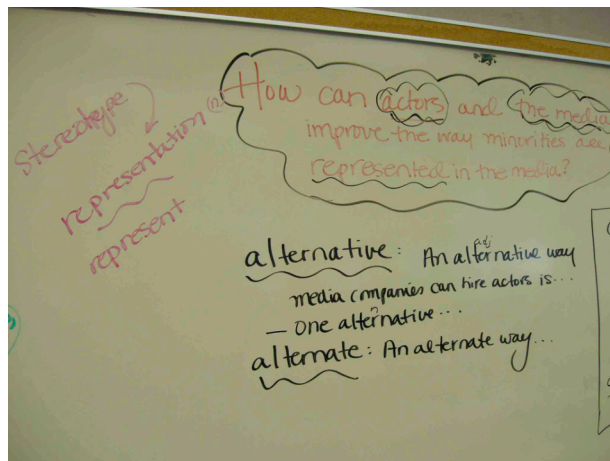 Stereotype
representation (n)
represent
How can actors and the media
improve the way minorities are
represented in the media?
alternative: An alternative way
adj
media companies can hire actors is...
— One alternative...
n
alternate: An alternate way...